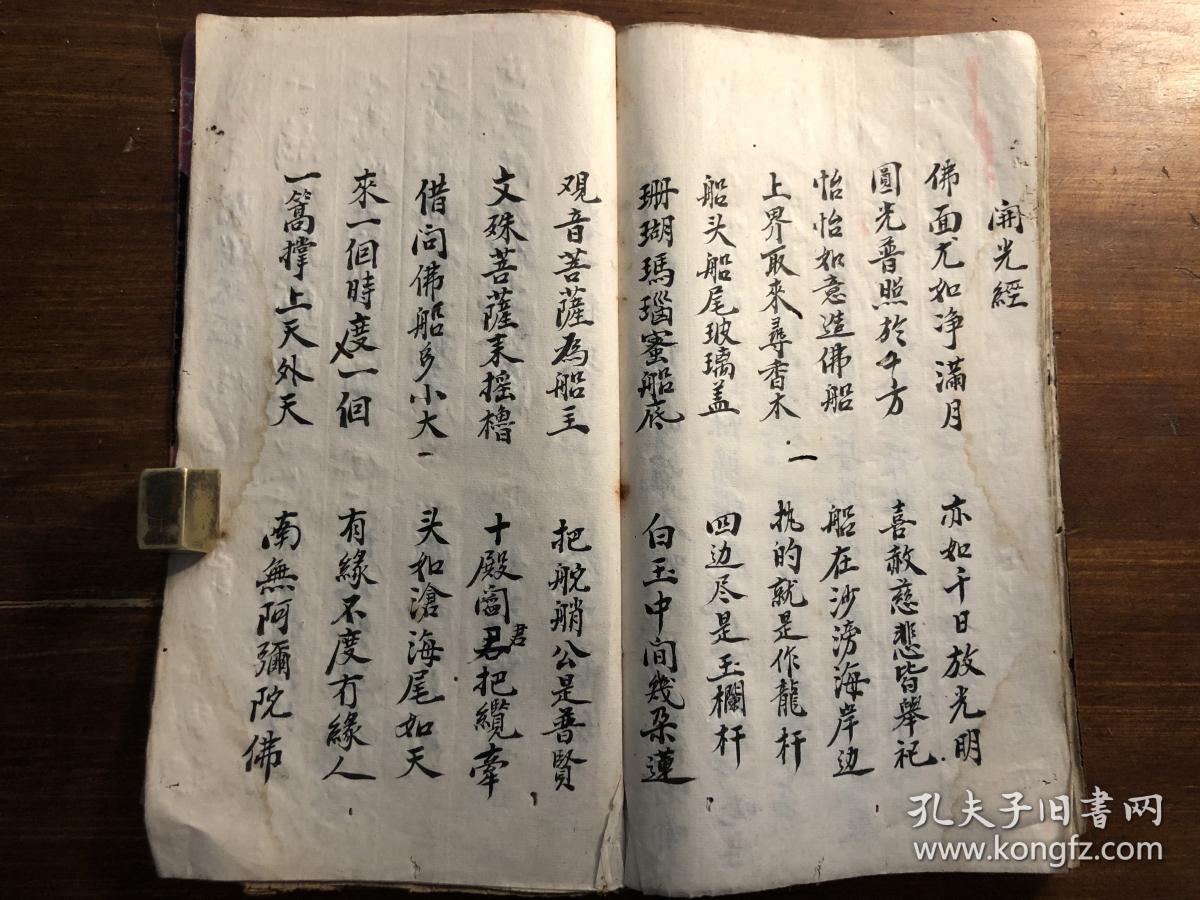 開光經
佛面尤如净滿月 亦如千日放光明
圓光普照於十方 喜敵慈悲皆舉祀
怡怡如意造佛船 船在沙滂海岸边
上界取來尋香木 执的就是作龍杆
船头船尾玻璃盖 四边尽是玉欄杆
珊瑚瑪瑙蜜船底 白玉中间幾朶蓮
观音菩薩為船主 把舵艄公是普賢
文殊菩薩来揺櫓 十殿閻君把纜牽
借问佛船多小大 头如滄海尾如天
來一佪時度一佪 有緣不度冇緣人
一篙撑上天外天 南無阿彌陀佛
孔夫子旧书网
www.kongfz.com